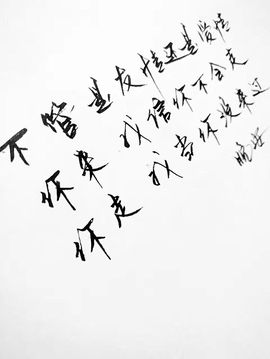 不管是友情还是爱情
你来 我信你不会走
你走 我当你没来过
晚安